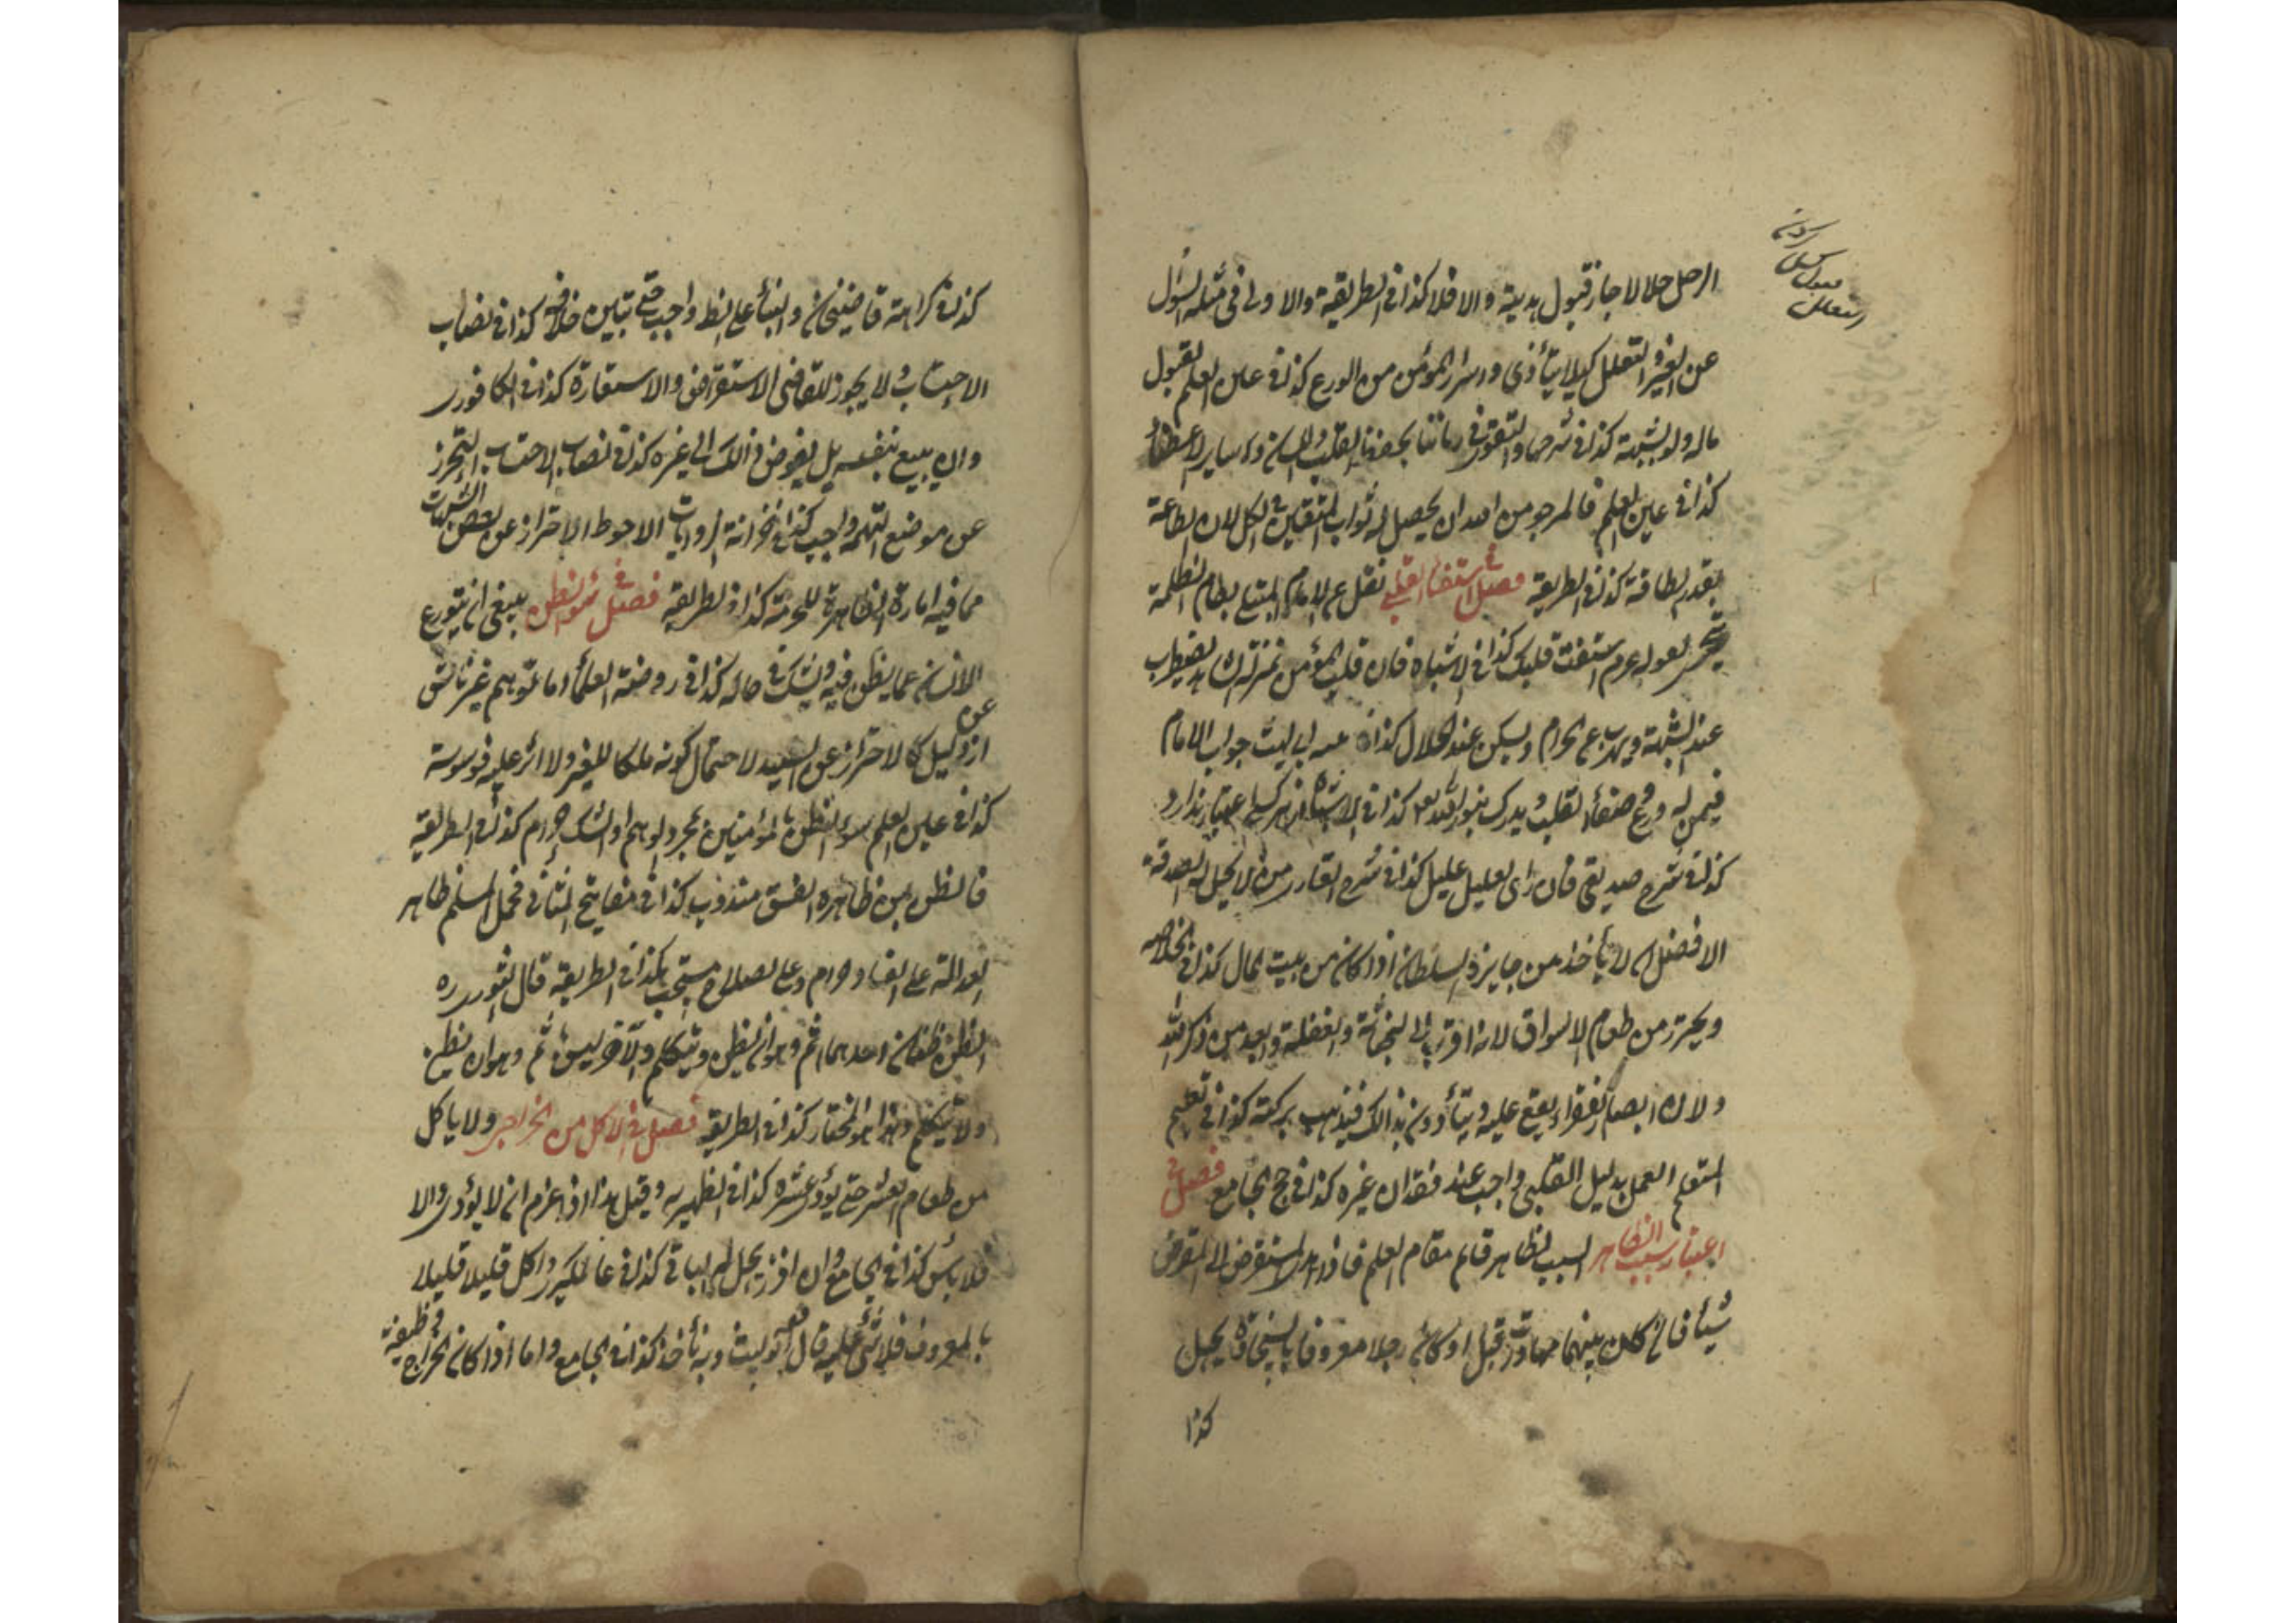 الرجل حلالا جاز قبول هديته والا فلا كذا في الطريقة والاولى في مثله السؤال
عن الغير التعلل كيلا يتأذى واسرار المؤمن من الورع كذا في عين العلم لقبول
ماله ولو بشبهة كذا في شرحها والتقوى في زماننا بحفظ القلب واللسان وساير الاعضاء
كذا في عين العلم فالمرجو من الله ان يحصل له ثواب المتقين في الكل لان الطاعة
بقدر الطاقة كذا في الطريقة فصل في استفتاء القلب نقل عن الامام المبتلى بطعام الظلمة
يتحرى لقوله عم استفت قلبك كذا في الاشباه فان قلب المؤمن يضطرب
عند الشبهة ويهرب عن الحرام ويسكن عند الحلال كذا في ابى ليث جواب الامام
فيمن له ورع وصفاء القلب يدرك بنور الله تعا كذا في الاشباه از هر كسى اعتبار ندارد
كذا في شرح صديقى فان راى العليل عليل كذا في شرح القارى من لا يحل له الصدقة
الافضل ان لا يأخذ من جايزة السلطان اذا كان من بيت المال كذا في الخلاصه
ويحترز من طعام الاسواق لانه اقرب الى النجاسة والغفلة وابعد من ذكر الله
ولان ابصار الفقراء يقع عليه ويتأذون بذالك فيذهب بركته كذا في تعليم
المتعلم العمل بدليل القلبى واجب عند فقدان غيره كذا في حج الجامع فصل في
اعتبار سبب الظاهر السبب الظاهر قايم مقام العلم فاذا اهدى المستقرض الى المقرض
شيئا فان كان بينهما مهاداة قبل او كان رجلا معروفا بالسخاوة يحل
كذا
كذا في كراهة قاضيخان والبناء على الظاهر واجب حتى تبين خلافه كذا في نصاب
الاحتساب ولا يجوز للقاضى الاستقراض والاستعارة كذا في الكافورى
وان يبيع بنفسه بل يفوض ذالك الى غيره كذا في نصاب الاحتساب التحرز
عن موضع التهمة واجب كذا في خزانة الروايات الاحوط الاحتراز عن بعض الشبهات
مما فيه امارة الظاهرة للحرمة كذا في الطريقة فصل في سوء الظن ينبغى ان يتورع
الانسان عما يظن فيه ويشك في حاله كذا في روضة العلماء اما توهم غير ناش
عن
از دليل كالاحتراز عن الصيد لاحتمال كونه ملكا للغير ولا اثر عليه فوسوسة
كذا في عين العلم سوء الظن بالمؤمنين بمجرد الوهم او الشك حرام كذا في الطريقة
فالظن بمن ظاهره الفسق مندوب كذا في مفاتيح فحمل المسلم ظاهر
العدالة على الفساد حرام وعلى الصلاح مستحب كذا في الطريقة قال الثورى ره
الظن ظنان احدهما اثم وهو ان يظن ويتكلم والآخر ليس باثم وهو ان يظن
ولا يتكلم وهذا هو المختار كذا في الطريقة فصل في الاكل من الخراجى ولا ياكل
من طعام العشر حتى يؤدى عشره كذا في الظهيريه وقيل هذا اذا عزم ان لا يؤدى والا
فلا بأس كذا في الجامع وان افرز يحل له الباقى كذا في عالمگيرى واكل قليلا قليلا
بالمعروف فلا شئ عليه قال الفقيه ابو ليث وبه نأخذ كذا في الجامع واما اذا كان الخراج وظيفة